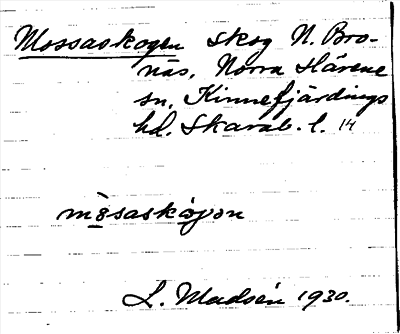 Mossaskogen skog N. Bro-
näs, Norra Härene
sn, Kinnefjärdings
hd. Skarab. l. 14
L. Madsén 1930.